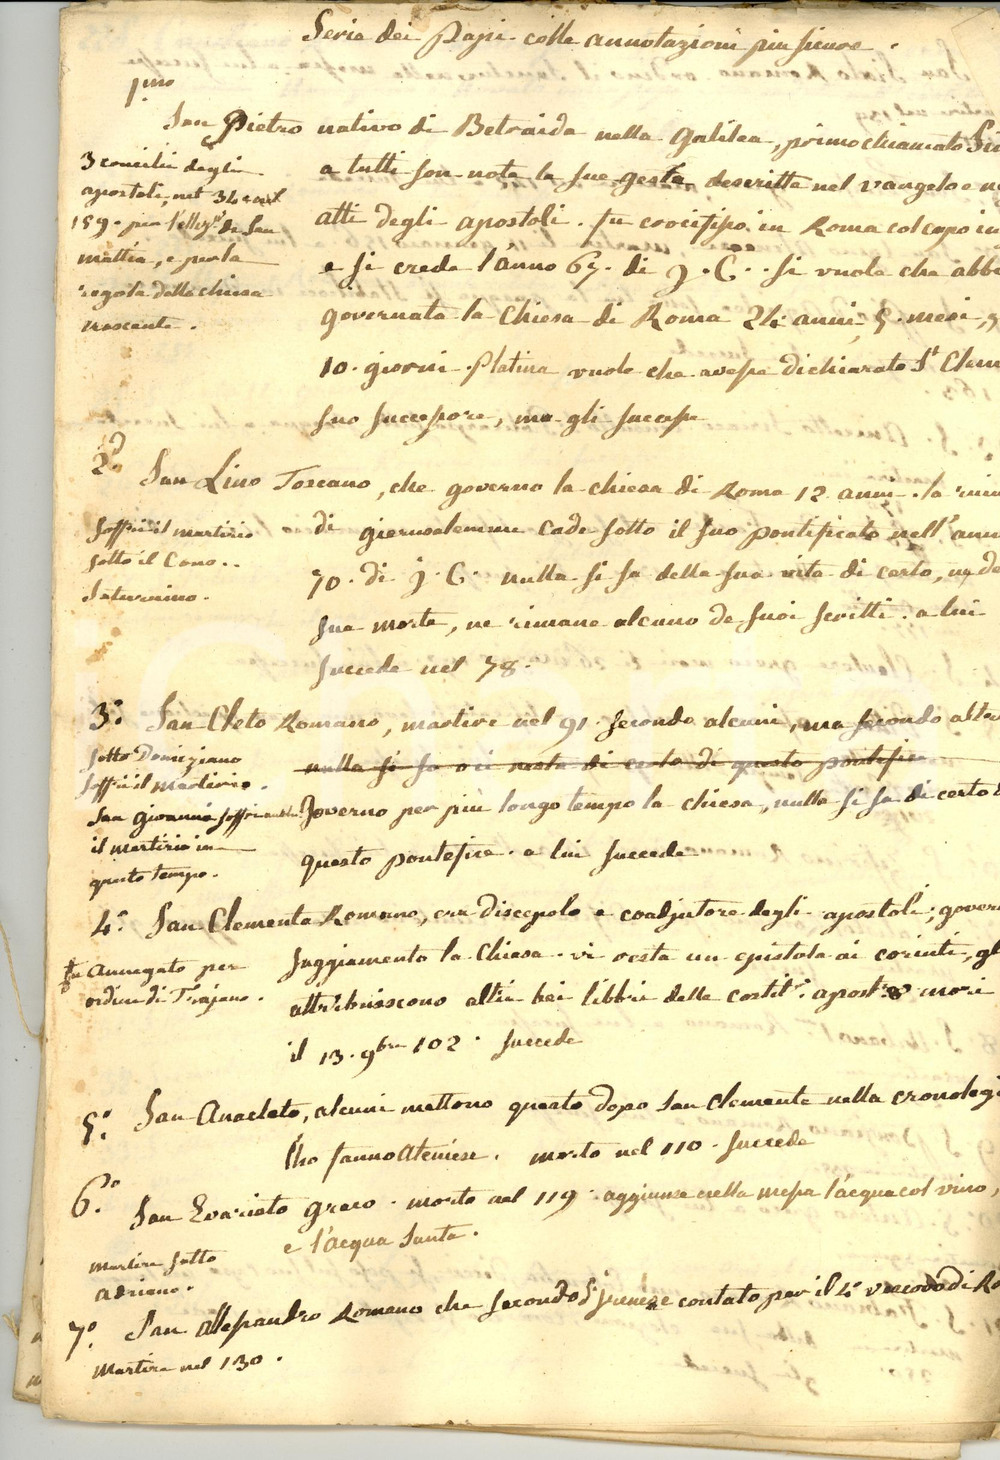 Serie dei Papi colle annotazioni piu sicure.
1mo
San Pietro nativo di Betsaida nella Galilea, primo chiamato
3 concilii degli
apostoli, nel 34 e nel
159. per l'elez.e di San
mattia, e per la
regola della chiesa
nascente.
a tutti son note le sue gesta descritte nel vangelo e
atti degli apostoli. fu crocifisso in Roma col capo in
e si crede l'anno 67. di J. C. Si vuole che abbi
governata la Chiesa di Roma 24 anni, 5. mesi,
10. giorni. Platina vuole che avesse dichiarato St. Clem
suo successore, ma gli successe
2do
San Lino Toscano, che governo la chiesa di Roma 12 anni. la
Soffri il martirio
sotto il Cons..
Saturnino.
di gierusalemme cade sotto il suo pontificato nell' ann
70. di J. C. nulla si sa della sua vita di certo, ne de
sua morte, ne rimane alcuno de suoi scritti. a lui
succede nel 78.
3.o San Cleto Romano, martire nel 91. secondo alcuni, ma secondo altri
sotto Domiziano
soffri il martirio.
San giovanni soffri
il martirio in
questo tempo.
nulla si sa di certo di questo pontefice
Governo per più longo tempo la chiesa, nulla si sa di certo
questo pontefice. a lui succede
4.o San Clemente Romano, era discepolo e coadjutore degli apostoli; govern
fu Annegato per
ordine di Trajano.
saggiamente la Chiesa. vi resta un epistola ai corinti, gl
attribuiscono altri bei libbri delle costit.i apost.e mori
il 13. 9bre 102. succede
5.o San Anacleto, alcuni mettono questo dopo San Clemente nella cronologi
Lho fanno Ateniese. morto nel 110. succede
6.o San Evaristo greco. morto nel 119. aggiunse nella messa l'acqua col vino,
e l'acqua santa.
martire sotto
adriano.
7.o San Allessandro Romano che secondo S. Jreneo e contato per il 4 vescovo di Ro
Martire nel 130.